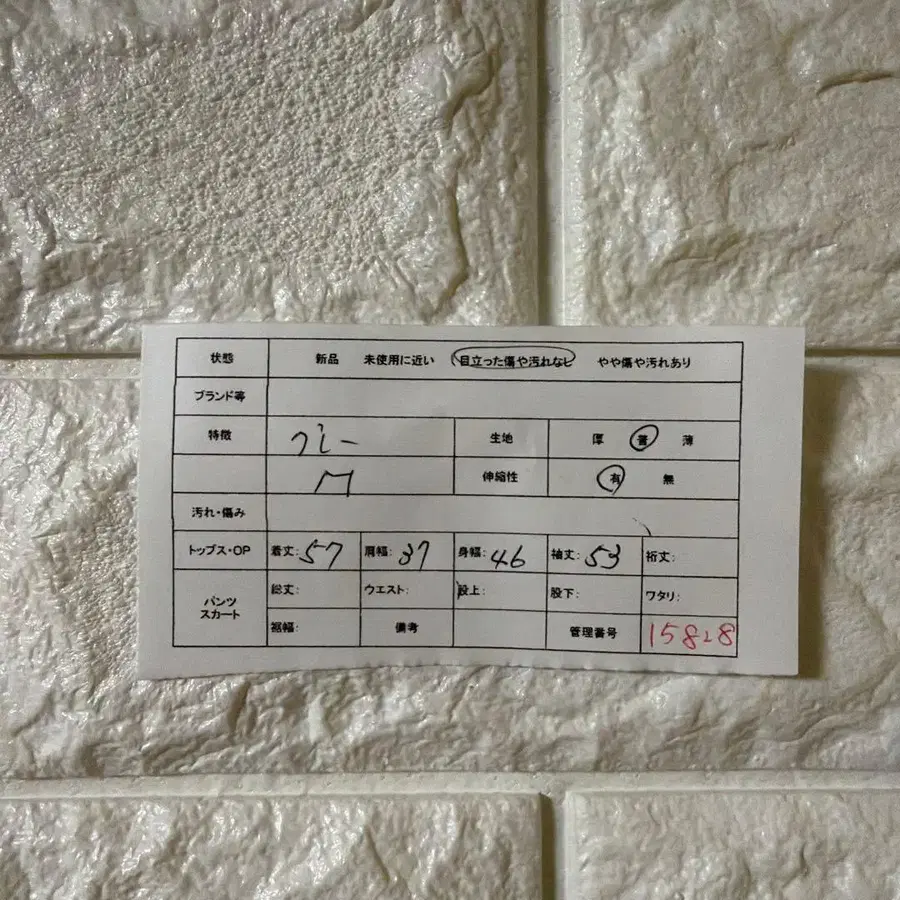 状態 新品 未使用に近い 目立った傷や汚れなし やや傷や汚れあり
ブランド等
特徴 グレー 生地 厚 普 薄
M 伸縮性 有 無
汚れ・傷み
トップス・OP 着丈: 57 肩幅: 37 身幅: 46 袖丈: 53 裄丈:
パンツ スカート 総丈: ウエスト: 股上: 股下: ワタリ:
裾幅: 備考 管理番号 15828